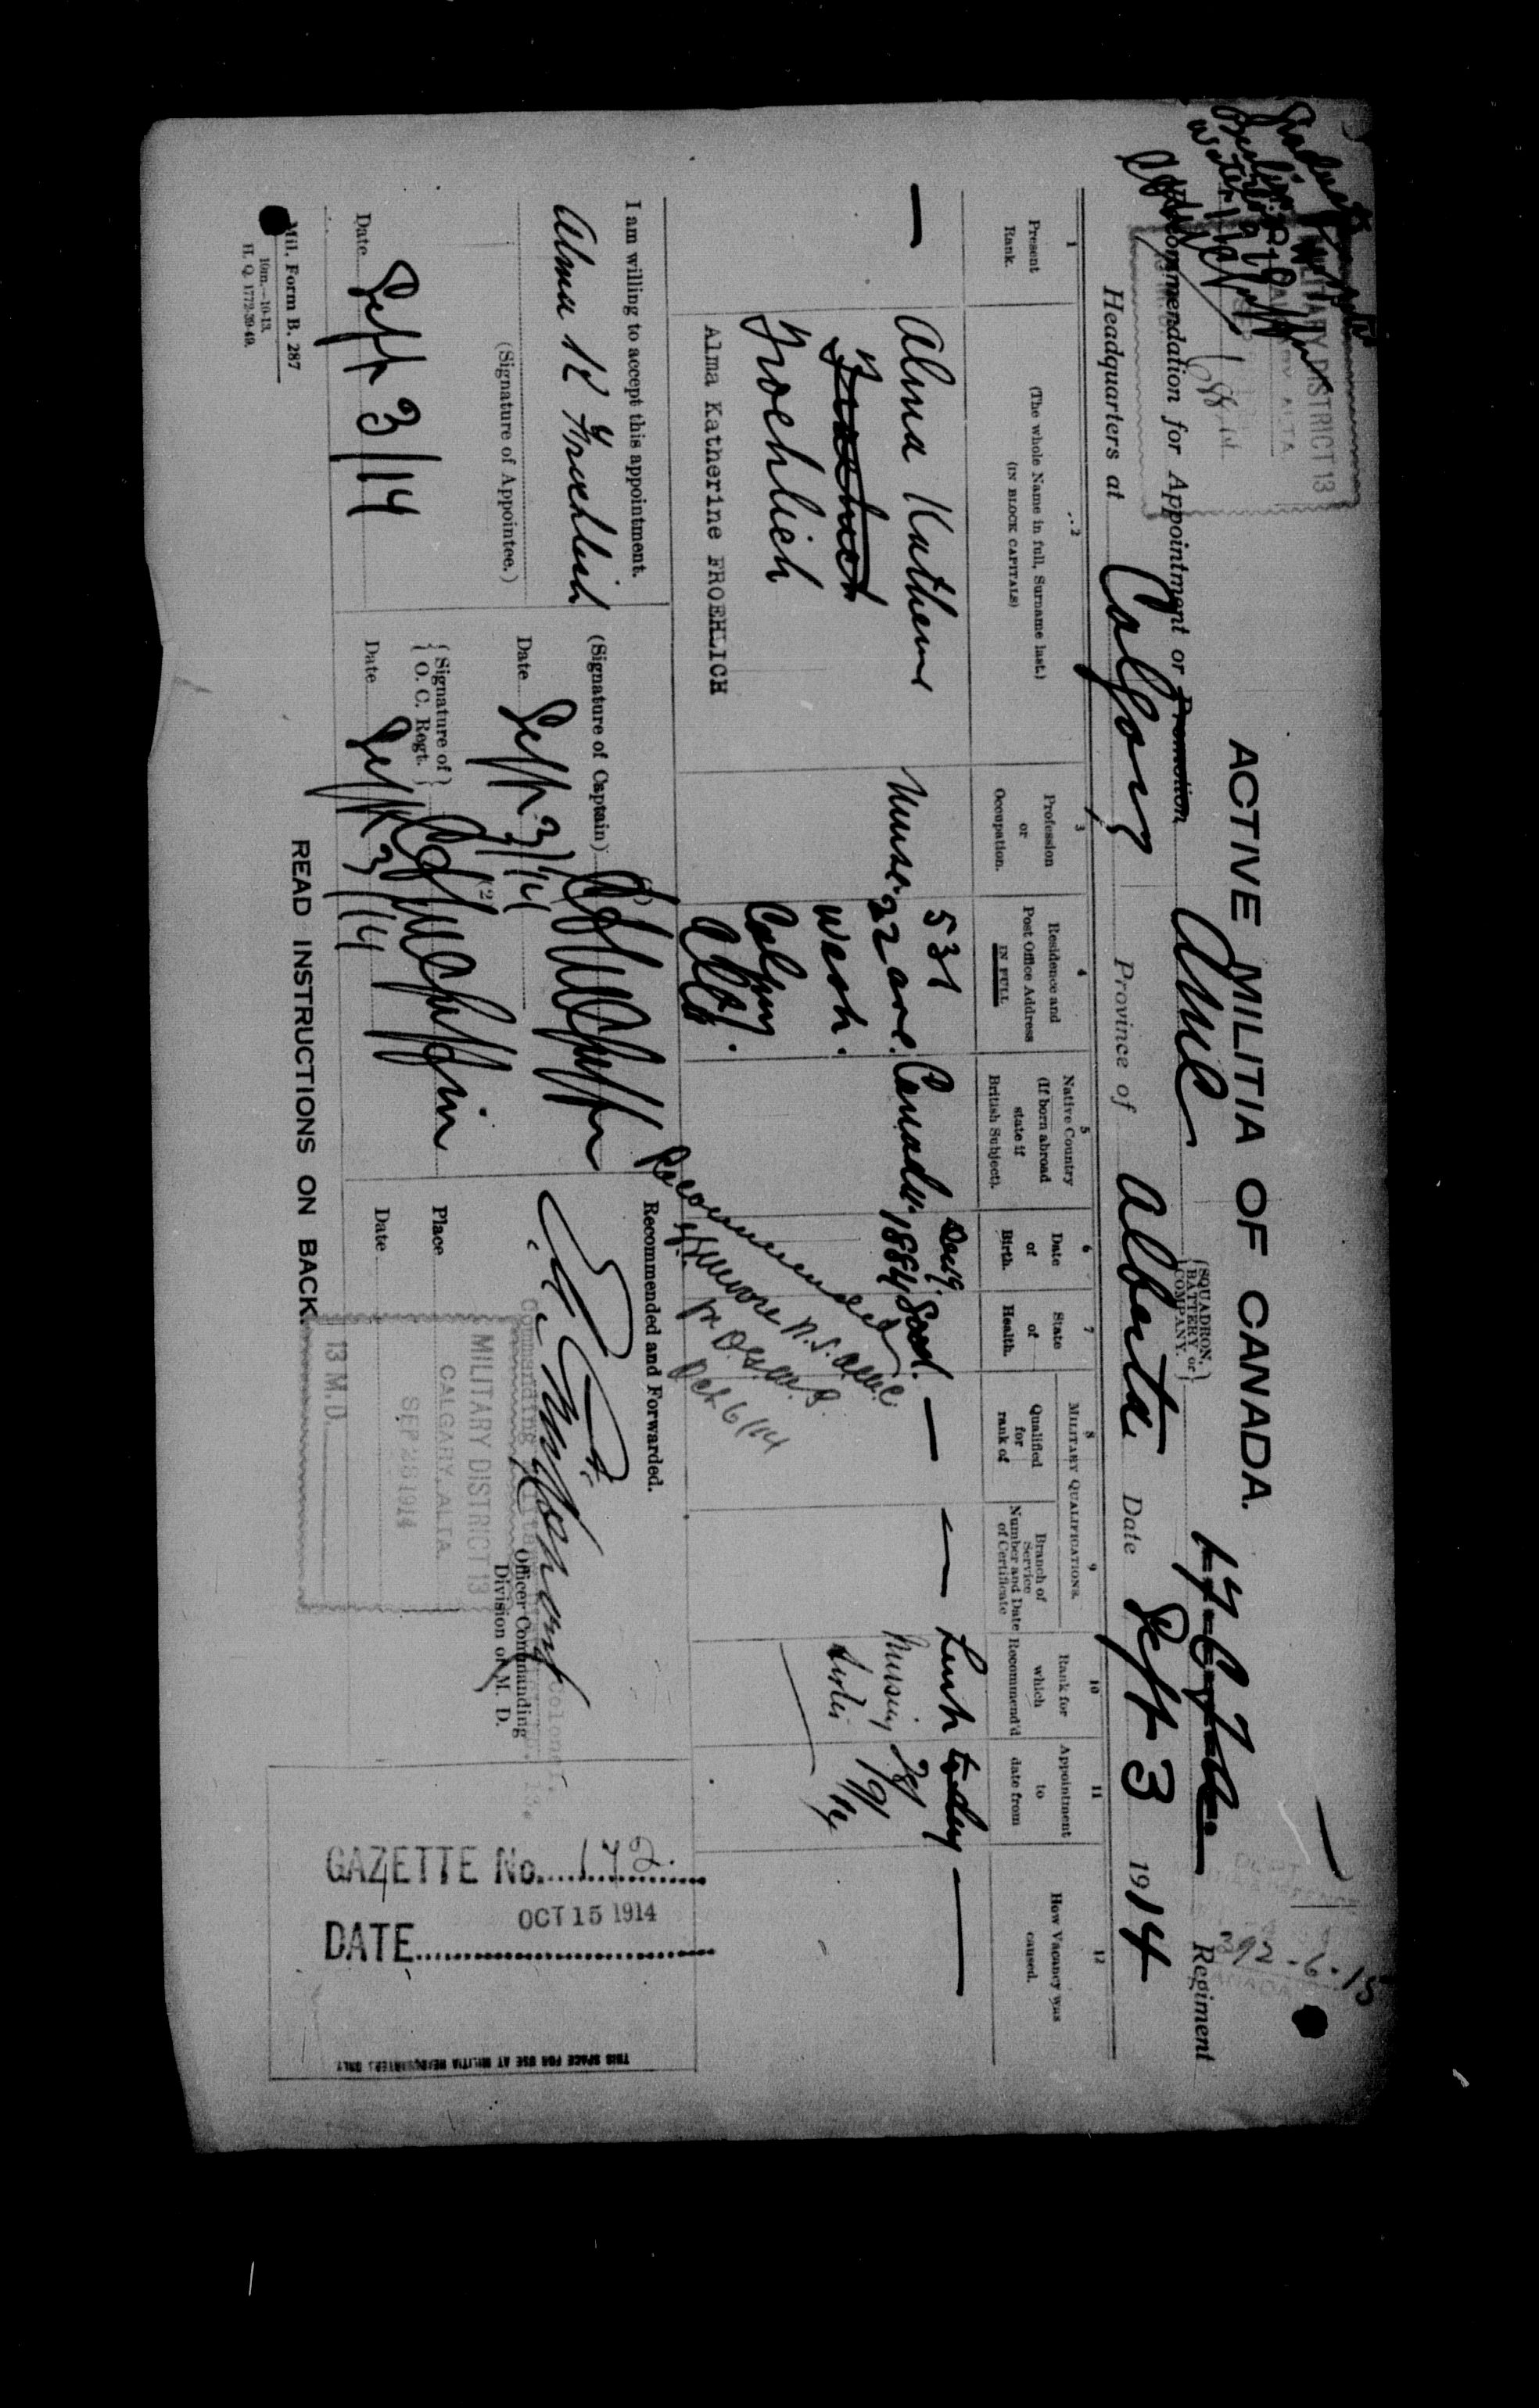 ACTIVE MILITIA OF CANADA.
MILITARY DISTRICT 13
Recommendation for Appointment or Promotion
AMC
{SQUADRON, BATTERY or COMPANY.}
Regiment
392-6-15
Headquarters at Calgary Province of Alberta Date Sept 3 1914
1
Present
Rank.
2
(The whole Name in full, Surname last.)
(IN BLOCK CAPITALS)
3
Profession
or
Occupation.
4
Residence and
Post Office Address
IN FULL
5
Native Country
(If born abroad
state if
British Subject).
6
Date
of
Birth.
7
State
of
Health.
MILITARY QUALIFICATIONS.
8
Qualified
for
rank of
9
Branch of
Service
Number and Date
of Certificate
10
Rank for
which
Recommend'd
11
Appointment
to
date from
12
How Vacancy was
caused.
—
Alma Katherine
Froehlich
Alma Katherine FROEHLICH
Nurse
531
22 ave.
West.
Calgary
Alta.
Canada.
Dec 19.
1884
Good.
—
—
Lieut
Nursing
Sister
today
—
Recommended
N.S. AMC
Oct 6/14
I am willing to accept this appointment.
Alma K Froehlich
(Signature of Appointee.)
Date Sept 3/14
(Signature of Captain) (1)
Date Sept 3/14
{Signature of O. C. Regt.} (2)
Date Sept 3/14
Recommended and Forwarded.
Colonel,
Commanding
Officer Commanding
Division or M. D.
Place
Date
MILITARY DISTRICT 13
CALGARY, ALTA.
SEP 28 1914
13 M.D.
GAZETTE No.
DATE OCT 15 1914
THIS SPACE FOR USE AT MILITIA HEADQUARTERS ONLY
Mil. Form B. 287
10m.—10-13.
H. Q. 1772-39-49.
READ INSTRUCTIONS ON BACK.